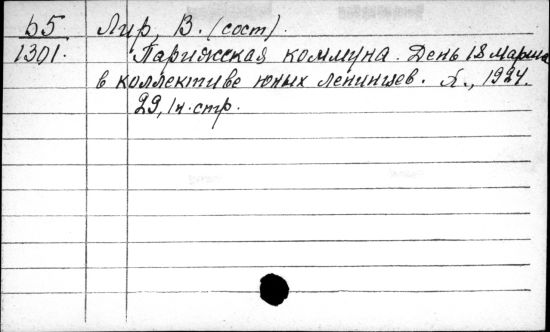 Б5. Лир, В. (сост).
1301. Парижская коммуна. День 18 марта
в коллективе юных ленинцев. Л., 1924.
29, 1н.стр.